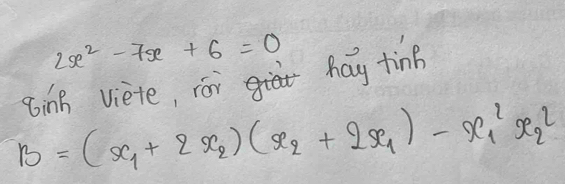 2x² - 7x + 6 = 0
Tính Viète, rồi giải hãy tính
B = (x₁ + 2x₂)(x₂ + 2x₁) - x₁² x₂²